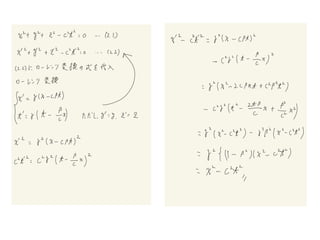 x²+y²+z²-c²t²=0 … (2.1)
x'²+y'²+z'²-c²t'²=0 … (2.2)
(2.2)にローレンツ変換の式を代入
ローレンツ変換
x'=γ(x-cβt)
t'=γ(t-β/c x) ただし y'=y, z'=z
x'²=γ²(x-cβt)²
c²t'²=c²γ²(t-β/c x)²
x'²-c²t'²=γ²(x-cβt)²
-c²γ²(t-β/c x)²
=γ²(x²-2cβxt+c²β²t²)
-c²γ²(t²-2tβ/c x+β²/c² x²)
=γ²(x²-c²t²)-γ²β²(x²-c²t²)
=γ²{(1-β²)(x²-c²t²)
=x²-c²t²